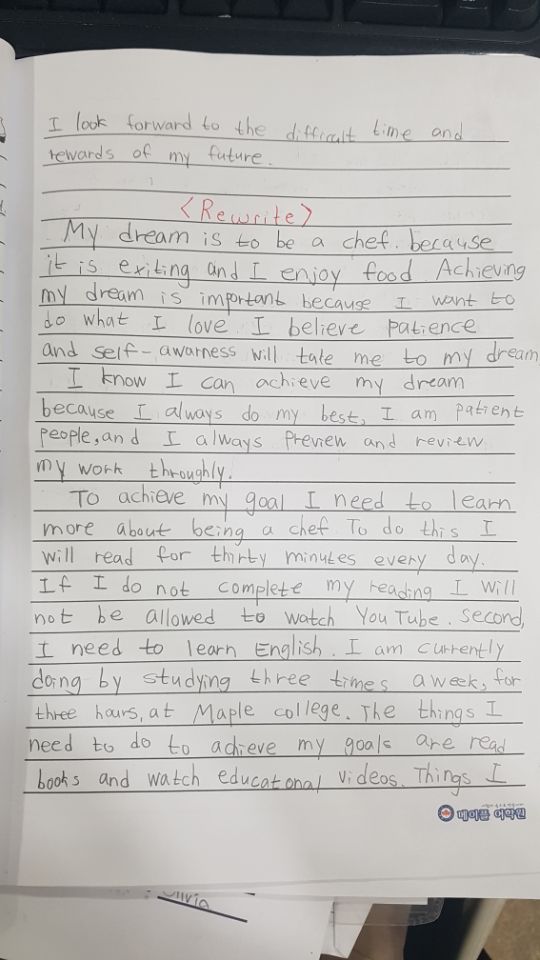 I look forward to the difficult time and
rewards of my future.
<Rewrite>
My dream is to be a chef. because
it is exiting and I enjoy food. Achieving
my dream is important because I want to
do what I love. I believe patience
and self-awarness will tate me to my dream
I know I can achieve my dream
because I always do my best, I am patient
people, and I always Preview and review
my work throughly.
To achieve my goal I need to learn
more about being a chef. To do this I
will read for thirty minutes every day.
If I do not complete my reading I will
not be allowed to watch YouTube. second,
I need to learn English. I am currently
doing by studying three times a week, for
three hours, at Maple college. The things I
need to do to achieve my goals are read
books and watch educatonal videos. Things I
메이플 어학원
Olivia